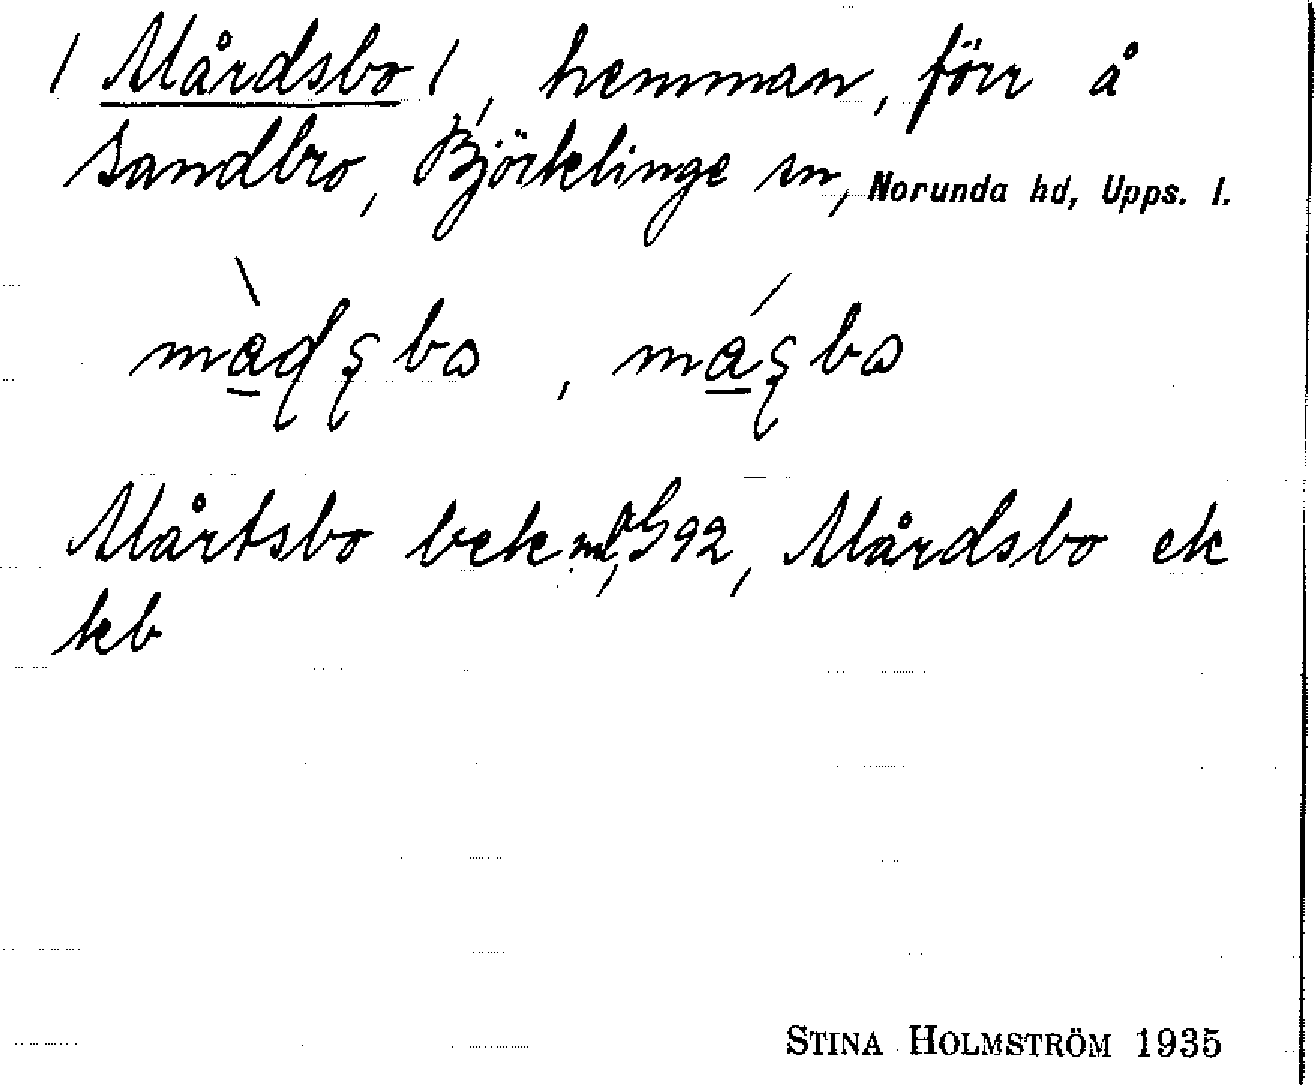 / Mårdsbo /, hemman, förr å
Sandbro, Björklinge sn, Norunda hd, Upps. l.
Mårtsbo bek 92, Mårdsbo ek
kb
STINA HOLMSTRÖM 1935